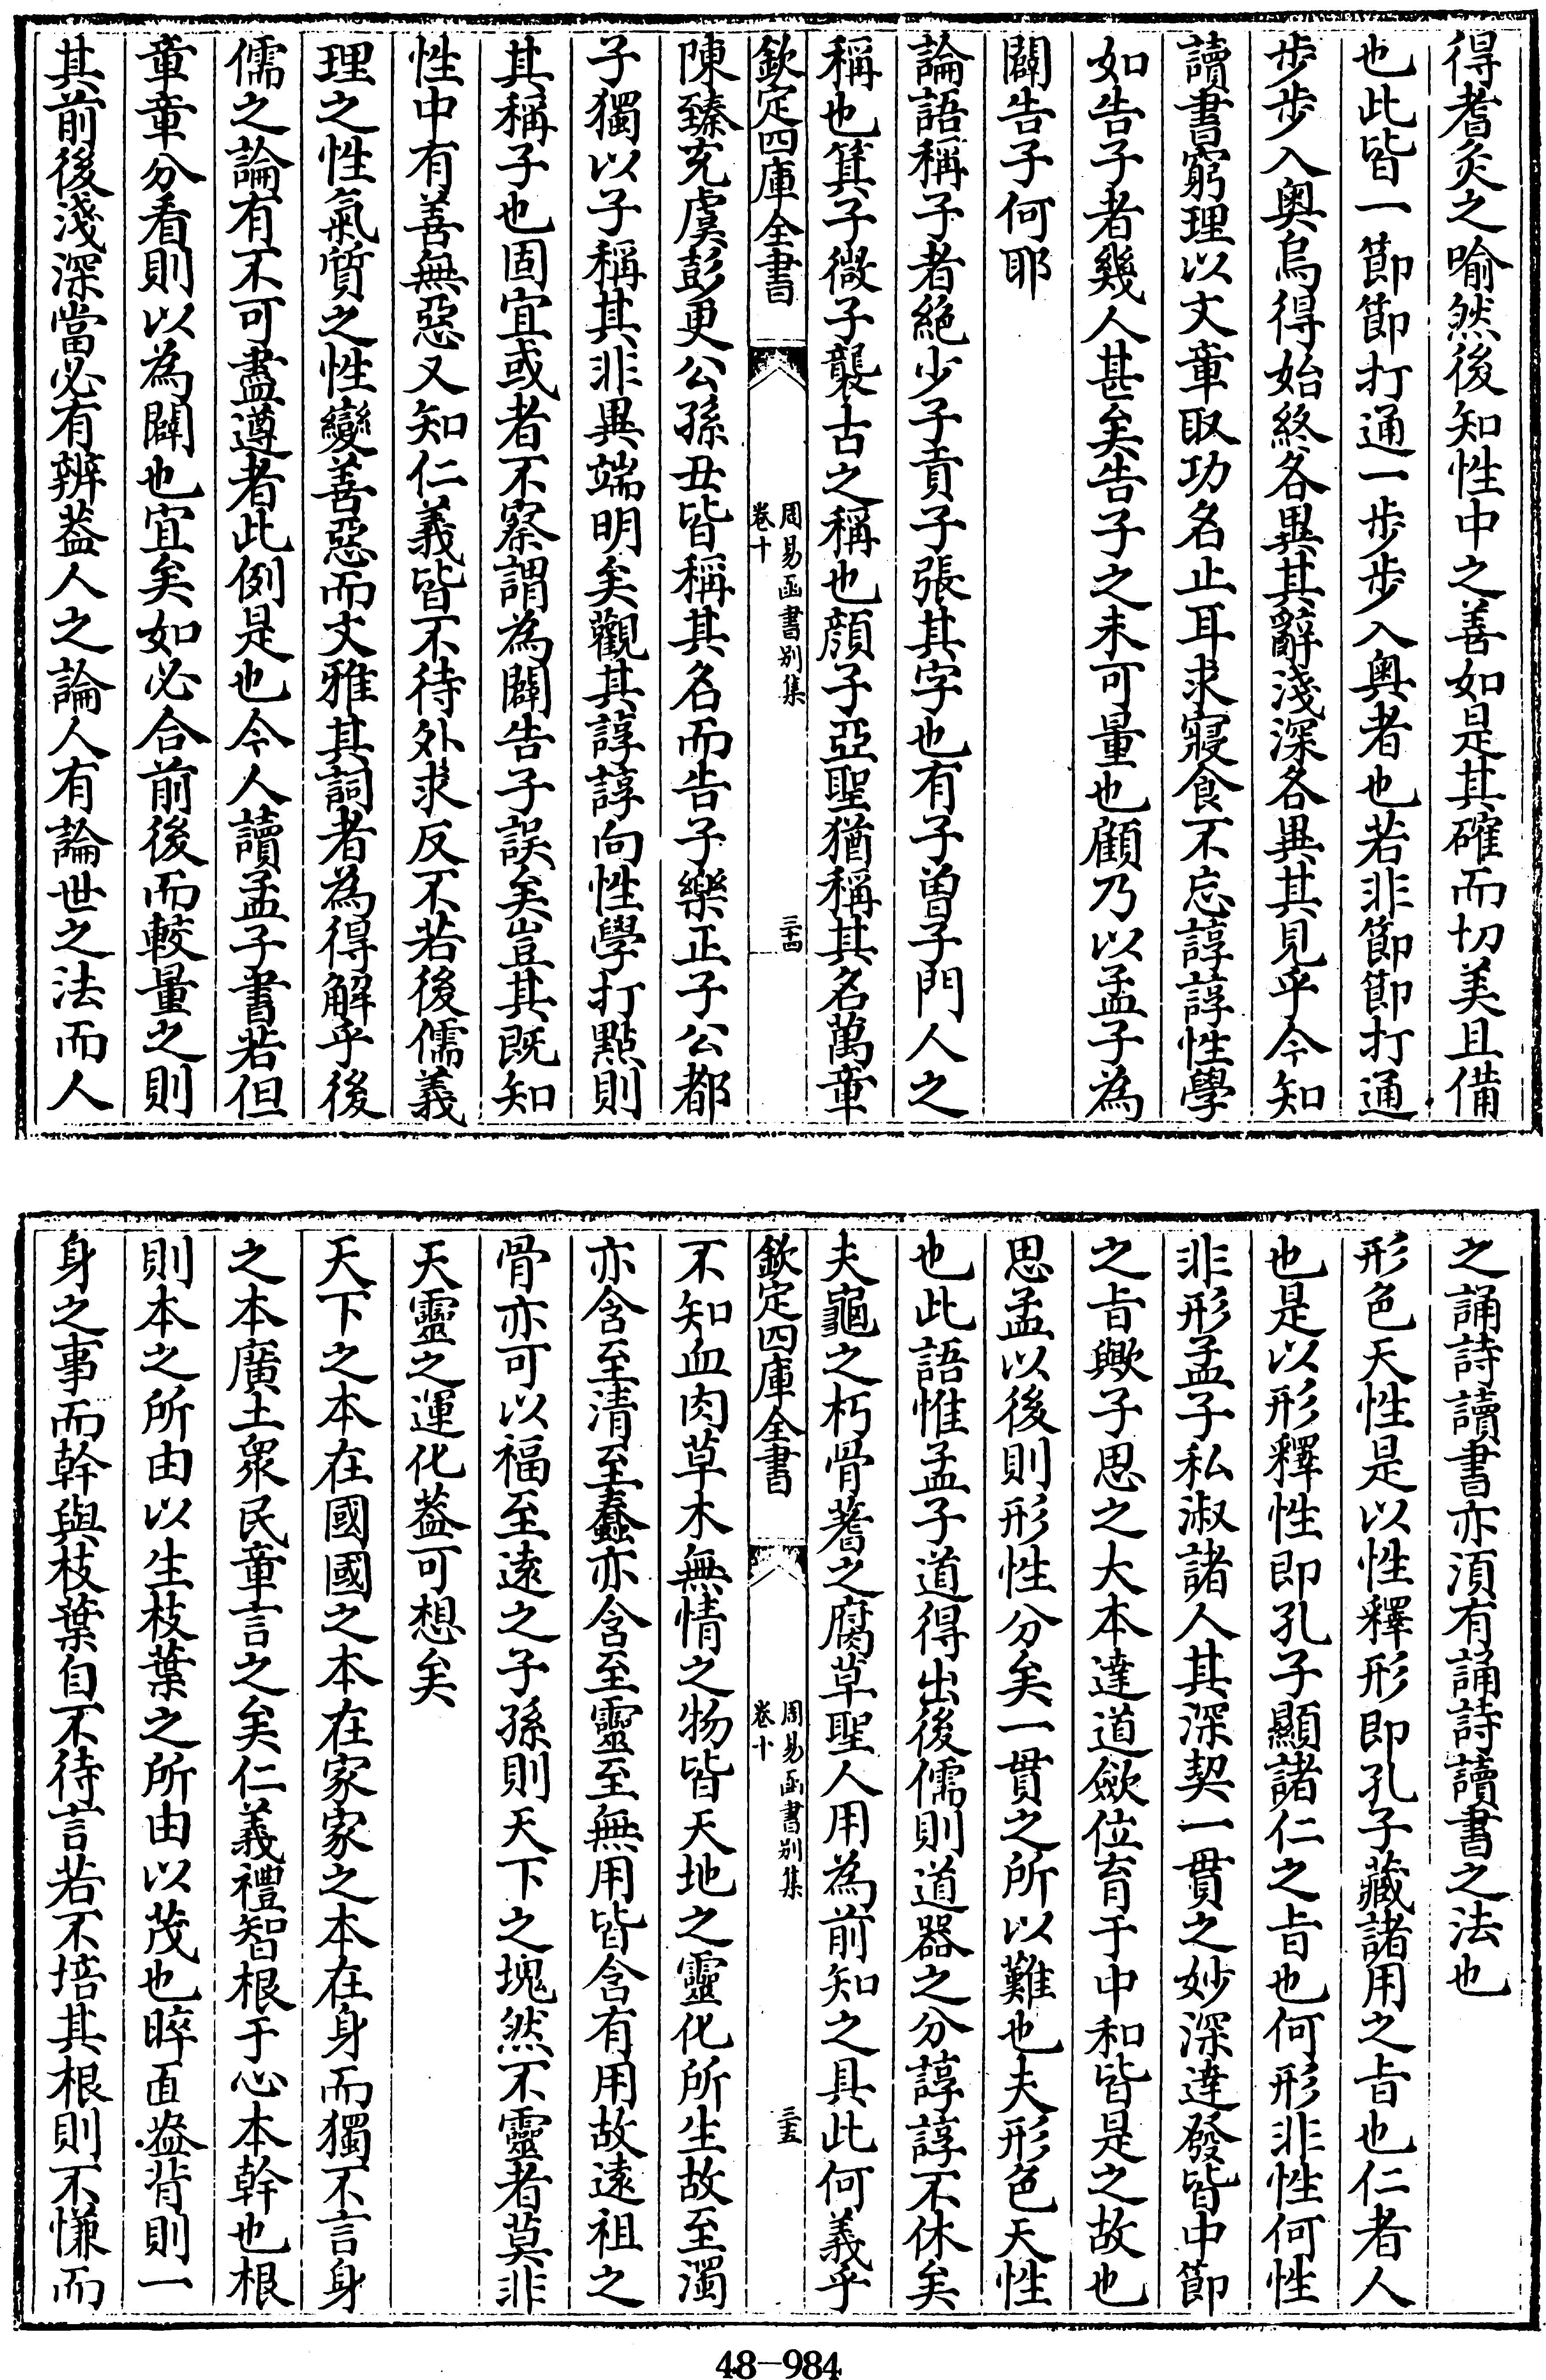 得耆炙之喻然後知性中之善如是其確而切美且備
也此皆一節節打通一步步入奥者也若非節節打通
步步入奥烏得始終各異其辭淺深各異其見乎今知
讀書窮理以文章取功名止耳求寢食不忘諄諄性學
如告子者幾人甚矣告子之未可量也顧乃以孟子為
闢告子何耶
論語稱子者絶少子貢子張其字也有子曽子門人之
稱也箕子微子襲古之稱也顔子亞聖猶稱其名萬章
欽定四庫全書
周易函書别集
卷十
三十四
陳臻充虞彭更公孫丑皆稱其名而告子樂正子公都
子獨以子稱其非異端明矣觀其諄諄向性學打點則
其稱子也固宜或者不察謂為闢告子誤矣豈其既知
性中有善無惡又知仁義皆不待外求反不若後儒義
理之性氣質之性變善惡而文雅其詞者為得解乎後
儒之論有不可盡遵者此例是也今人讀孟子書若但
章章分看則以為闢也宜矣如必合前後而較量之則
其前後淺深當必有辨葢人之論人有論世之法而人
之誦詩讀書亦須有誦詩讀書之法也
形色天性是以性釋形即孔子藏諸用之旨也仁者人
也是以形釋性即孔子顯諸仁之旨也何形非性何性
非形孟子私淑諸人其深契一貫之妙深達發皆中節
之旨歟子思之大本達道歛位育于中和皆是之故也
思孟以後則形性分矣一貫之所以難也夫形色天性
也此語惟孟子道得出後儒則道器之分諄諄不休矣
夫龜之朽骨蓍之腐草聖人用為前知之具此何義乎
欽定四庫全書
周易函書别集
卷十
三十五
不知血肉草木無情之物皆天地之靈化所生故至濁
亦含至清至蠢亦含至靈至無用皆含有用故遠祖之
骨亦可以福至遠之子孫則天下之塊然不靈者莫非
天靈之運化葢可想矣
天下之本在國國之本在家家之本在身而獨不言身
之本廣土衆民章言之矣仁義禮智根于心本幹也根
則本之所由以生枝葉之所由以茂也睟面盎背則一
身之事而幹與枝葉自不待言若不培其根則不慊而
48-984